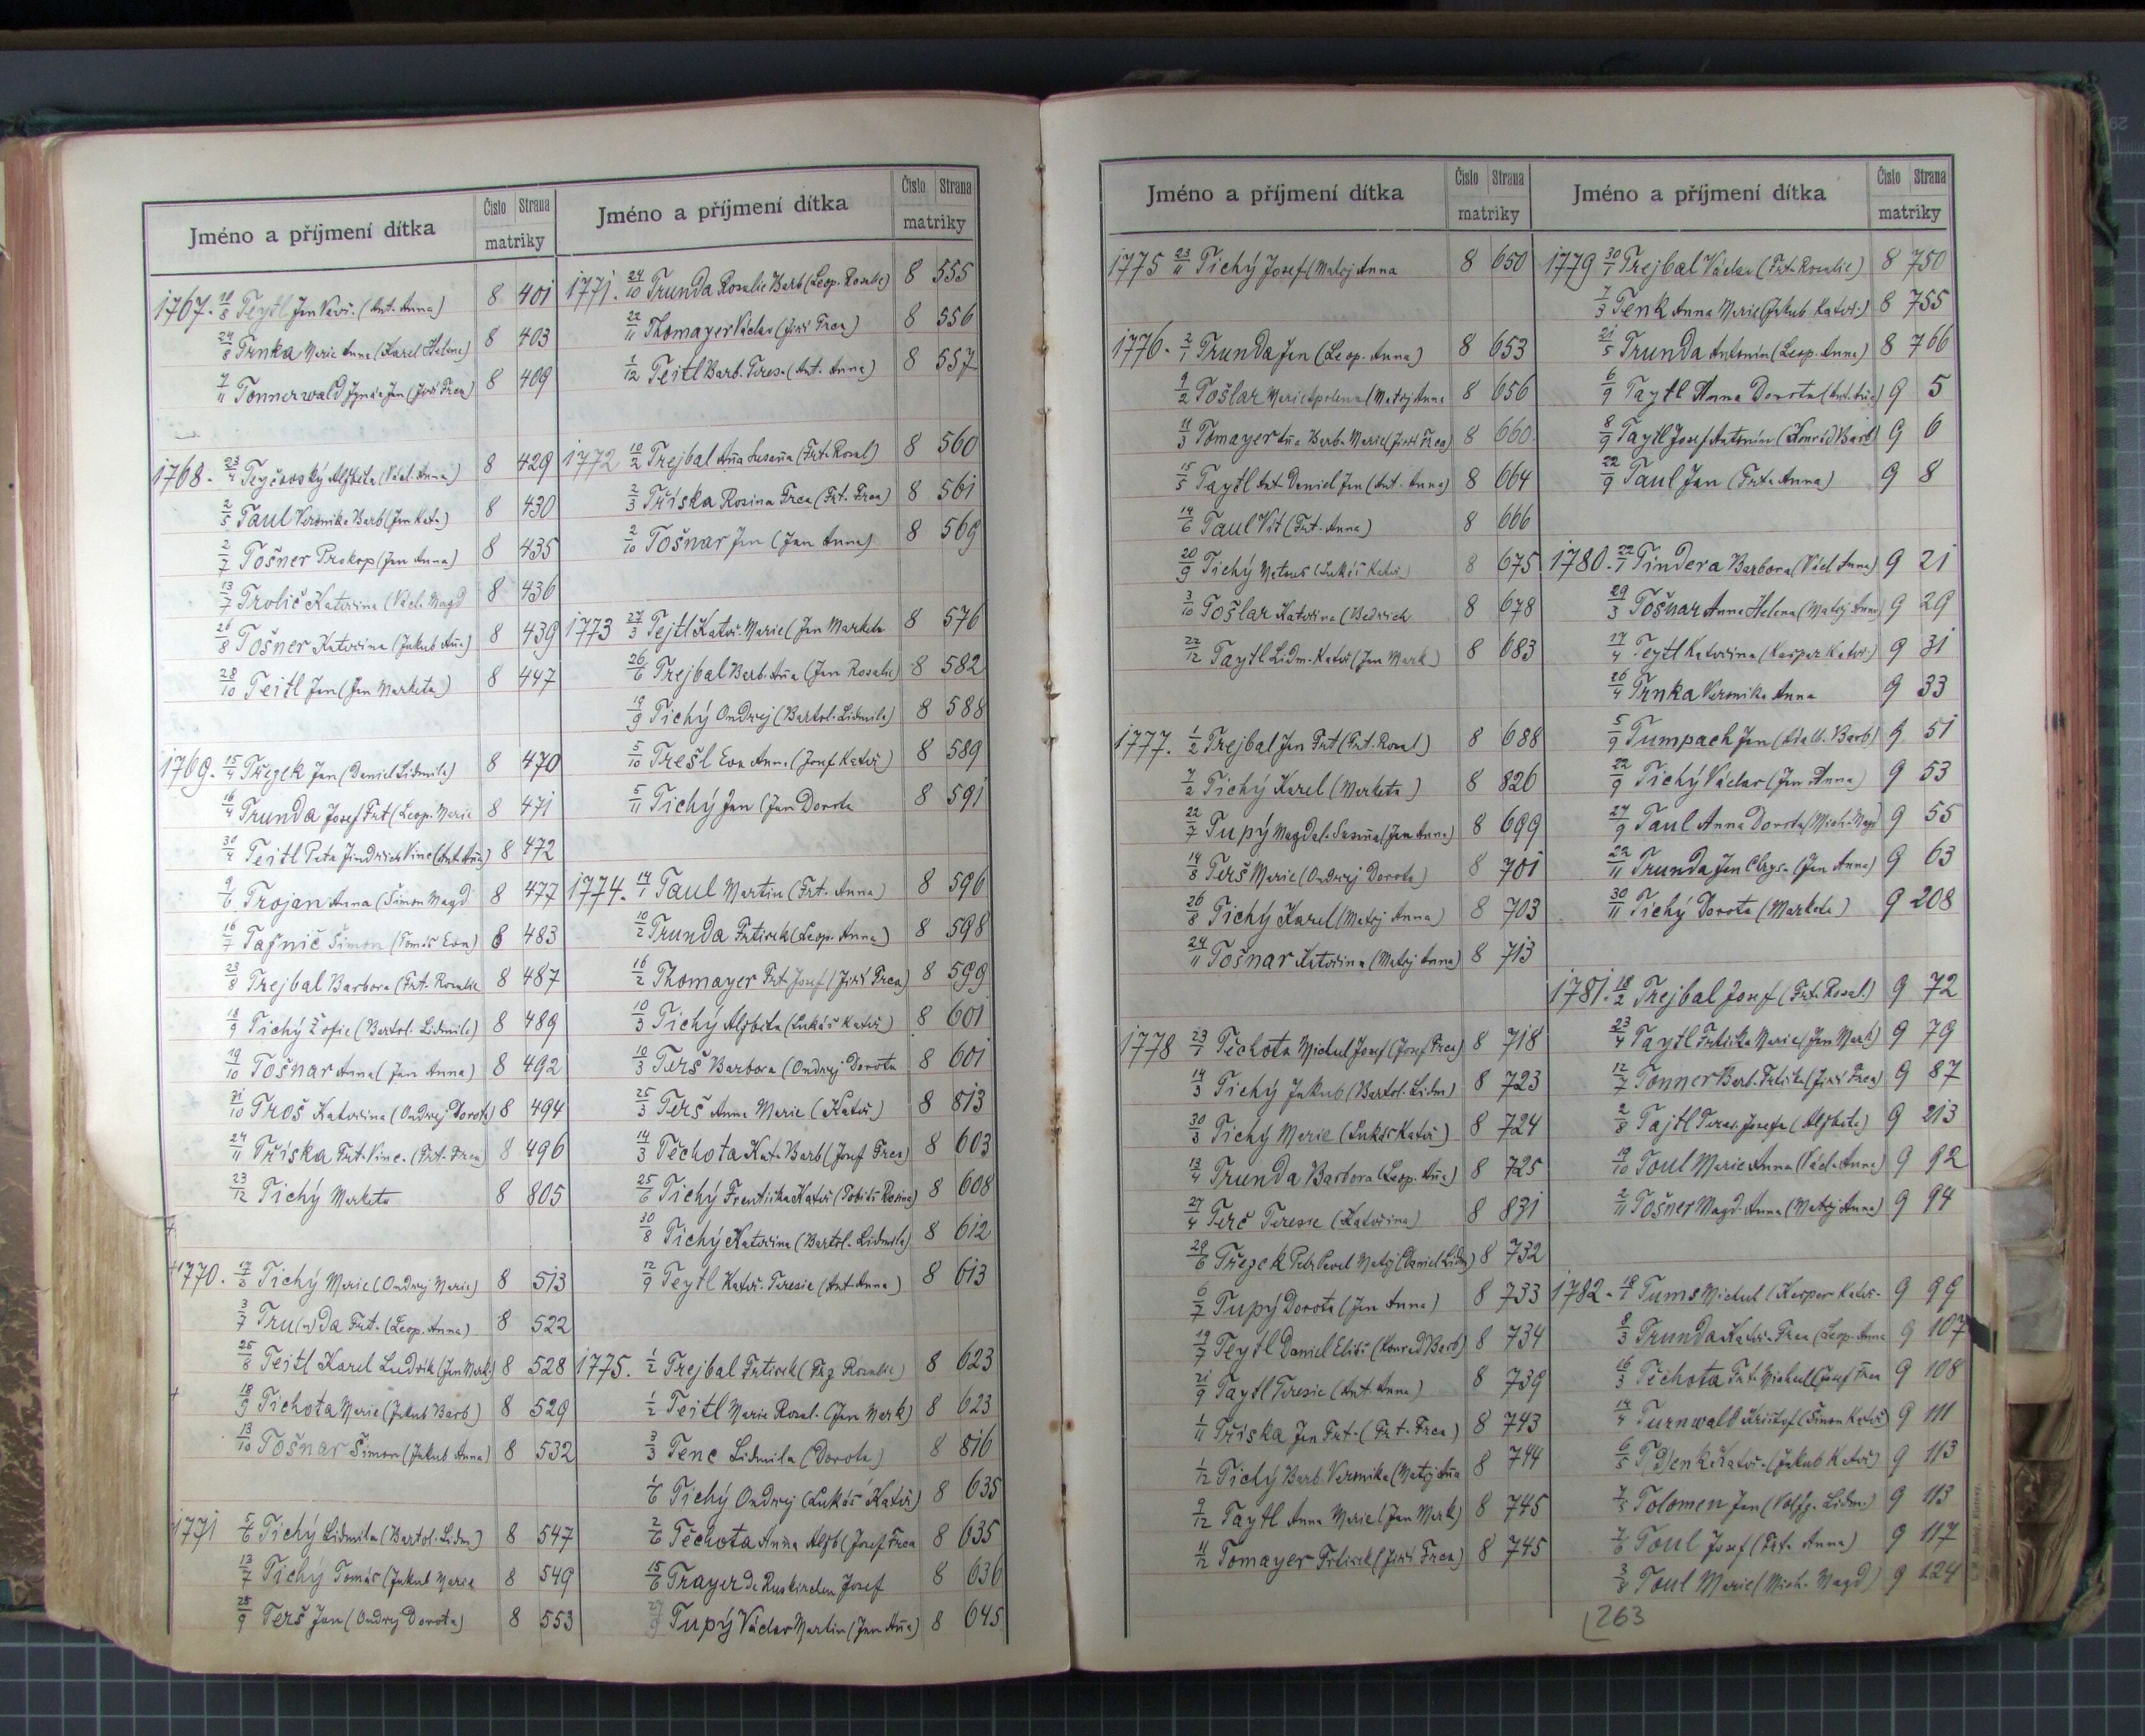 Jméno a příjmení dítka
Číslo Strana
matriky
1767. 18/8 Teytl Jan Vavř. (Ant. Anna) 8 401
24/8 Trnka Marie Anna (Karel Helena) 8 403
7/11 Tonnerwald Ignác Jan (Jiří Frca) 8 409
1768. 23/4 Teyčovský Alžběta (Václ. Anna) 8 429
2/5 Taul Veronika Barb (Jan Kat.) 8 430
2/7 Tošner Prokop (Jan Anna) 8 435
13/7 Trolič Kateřina (Václ. Magd 8 436
26/8 Tošner Kateřina (Jakub Añа) 8 439
28/10 Teitl Jan (Jan Marketa) 8 447
1769. 15/4 Třegek Jan (Daniel Lidmila) 8 470
16/4 Trunda Josef Frt (Leop. Marie 8 471
30/4 Teitl Petr Jindřich Vinc (Ant. Aña) 8 472
9/6 Trojan Anna (Šimon Magd 8 477
16/7 Tašnič Šimon (Tomáš Eva) 8 483
23/8 Trejbal Barbora (Frt. Rosalie 8 487
18/9 Tichý Žofie (Bartol. Lidmila) 8 489
19/10 Tošnar Anna (Jan Anna) 8 492
31/10 Troš Kateřina (Ondřej Dorota) 8 494
24/11 Tříska Frt. Vinc. (Frt. Frca) 8 496
23/12 Tichý Marketa 8 805
1770. 17/3 Tichý Marie (Ondřej Marie) 8 513
3/7 Tru(n)da Frt. (Leop. Anna) 8 522
25/8 Teitl Karel Ludvík (Jan Mark) 8 528
18/9 Tichota Marie (Jakub Barb) 8 529
13/10 Tošnar Šimon (Jakub Anna) 8 532
1771 5/6 Tichý Lidmila (Bartol. Lidm) 8 547
13/7 Tichý Tomáš (Jakub Marie 8 549
28/9 Terš Jan (Ondřej Dorota) 8 553
Jméno a příjmení dítka
Číslo Strana
matriky
1771. 24/10 Trunda Rosalie Barb (Leop. Rosalie) 8 555
22/11 Thomayer Václav (Jiří Frca) 8 556
1/12 Teitl Barb. Teres. (Ant. Anna) 8 557
1772 10/2 Trejbal Aña Susaña (Frt. Rosal) 8 560
2/3 Tříska Rosina Frca (Frt. Frca) 8 561
2/10 Tošnar Jan (Jan Anna) 8 569
1773 27/3 Tejtl Kateř. Marie (Jan Marketa 8 576
26/6 Trejbal Barb. Aña (Jan Rosalie) 8 582
19/9 Tichý Ondřej (Bartol. Lidmila) 8 588
5/10 Trešl Eva Anna (Josef Kateř) 8 589
5/11 Tichý Jan (Jan Dorota 8 591
1774. 14/1 Taul Martin (Frt. Anna) 8 596
10/2 Trunda Frtisek (Leop. Anna) 8 598
16/2 Thomayer Frt. Josef (Jiří Frca) 8 599
10/3 Tichý Alžběta (Lukáš Kateř) 8 601
10/3 Terš Barbora (Ondřej Dorota 8 601
25/3 Terš Anna Marie (Kateř) 8 813
14/3 Těchota Kat. Barb (Josef Frca) 8 603
25/6 Tichý Františka Kateř (Tobiáš Rosina) 8 608
30/8 Tichý Kateřina (Bartol. Lidmila) 8 612
12/9 Teytl Kateř. Teresie (Ant Anna) 8 613
1775. 1/2 Trejbal Frtisek (Rosalie) 8 623
1/2 Teitl Marie Rosal. (Jan Mark) 8 623
3/3 Tenc Lidmila (Dorota) 8 816
1/6 Tichý Ondřej (Lukáš Kateř) 8 635
2/6 Těchota Anna Alžb (Josef Frca 8 635
15/6 Trayer de Ruskirchen Josef 8 636
Tupý Václav Martin (Jan Aña) 8 645
Jméno a příjmení dítka
Číslo Strana
matriky
1775 23/11 Tichý Josef (Matěj Anna 8 650
1776. 2/1 Trunda Jan (Leop. Anna) 8 653
9/2 Tošlar Marie Apolena (Matěj Anna 8 656
11/3 Tomayer Aña Barb. Marie (Jiří Frca) 8 660
15/5 Taytl Ant Daniel Jan (Ant. Anna) 8 664
14/6 Taul Vít (Frt. Anna) 8 666
20/9 Tichý Matouš (Lukáš Kateř.) 8 675
3/10 Tošlar Kateřina (Bedřich 8 678
22/12 Taytl Lidm. Kateř (Jan Mark.) 8 683
1777. 1/2 Trejbal Jan Frt (Frt. Rosal) 8 688
7/2 Tichý Karel (Marketa) 8 826
22/7 Tupý Magdal. Susaña (Jan Anna) 8 699
14/8 Terš Marie (Ondřej Dorota) 8 701
26/8 Tichý Karel (Matěj Anna) 8 703
24/11 Tošnar Kateřina (Matěj Anna) 8 713
1778 23/1 Těchota Michal Josef (Josef Frca) 8 718
14/3 Tichý Jakub (Bartol. Lidm) 8 723
30/3 Tichý Marie (Lukáš Kateř) 8 724
13/4 Trunda Barbora (Leop. Aña) 8 725
27/4 Terč Teresie (Kateřina) 8 831
29/6 Třegek Petr Pavel Matěj (Daniel Lidm) 8 732
6/7 Tupý Dorota (Jan Anna) 8 733
19/7 Teytl Daniel Eliáš (Konrad Barb) 8 734
21/9 Taytl Teresie (Ant. Anna) 8 739
1/11 Tříska Jan Frt. (Frt. Frca) 8 743
1/12 Tichý Barb. Veronika (Matěj Aña 8 744
9/12 Taytl Anna Marie (Jan Mark) 8 745
11/12 Tomayer Frtisek (Jiří Frca) 8 745
Jméno a příjmení dítka
Číslo Strana
matriky
1779 30/1 Trejbal Václav (Frt. Rosalie) 8 750
7/3 Tenk Anna Marie (Jakub Kateř.) 8 755
21/5 Trunda Antonín (Leop. Anna) 8 766
6/9 Taytl Anna Dorota (Ant. Aña) 9 5
8/9 Taytl Josef Antonín (Konrad Barb) 9 6
22/9 Taul Jan (Frt. Anna) 9 8
1780. 22/1 Tindera Barbora (Václ Anna) 9 21
29/3 Tošnar Anna Helena (Matěj Anna) 9 29
17/4 Teytl Kateřina (Kašpar Kateř.) 9 31
26/4 Trnka Veronika Anna 9 33
5/9 Tumpach Jan (Adalb. Barb) 9 51
22/9 Tichý Václav (Jan Anna) 9 53
27/9 Taul Anna Dorota (Mich. Mag) 9 55
22/11 Trunda Jan Chrys. (Jan Anna) 9 63
30/11 Tichý Dorota (Marketa) 9 208
1781. 18/2 Trejbal Josef (Frt. Rosal.) 9 72
23/4 Taytl Frtiska Marie (Jan Mark) 9 79
12/7 Tonner Barb. Frtiska (Jiří Frca) 9 87
2/8 Tajtl Teres. Josefa (Alžběta) 9 213
19/10 Toul Marie Anna (Václ. Anna) 9 92
2/11 Tošner Magd. Anna (Matěj Anna) 9 94
1782. 18/1 Tums Michal (Kaspar Kateř. 9 99
8/3 Trunda Kateř. Frca (Leop. Anna 9 107
16/3 Těchota Frt. Michal (Josef Frca 9 108
14/4 Turnwald Kristof (Šimon Kateř) 9 111
6/5 T(D)enk Kateř. (Jakub Kateř) 9 113
7/5 Tolomen Jan (Volfg. Lidm.) 9 113
7/6 Toul Josef (Frt. Anna) 9 117
3/8 Toul Marie (Mich. Magd) 9 124
263